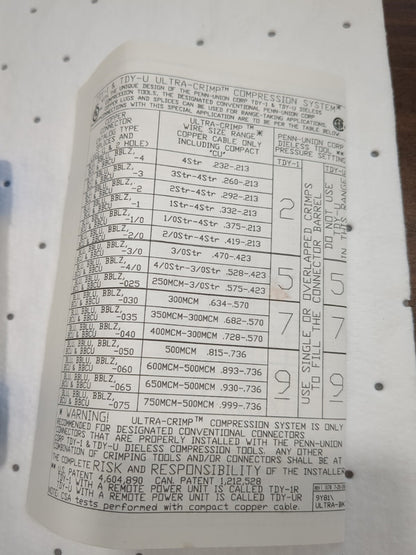 & TDY-U ULTRA-CRIMP™ COMPRESSION SYSTEM*
UNIQUE DESIGN OF THE PENN-UNION CORP TDY-I & TDY-U DIELESS
COMPRESSION TOOLS, THE DESIGNATED CONVENTIONAL PENN-UNION CORP
COPPER LUGS AND SPLICES CAN BE USED FOR RANGE-TAKING APPLICATIONS.
CONNECTIONS WITH THIS SPECIAL APPLICATION ARE TO BE PER THE TABLE BELOW.
COPPER
CONNECTOR
TYPE
AND
2 HOLE)
ULTRA-CRIMP™
WIRE SIZE RANGE*
COPPER CABLE ONLY
INCLUDING COMPACT
"CU"
PENN-UNION CORP
DIELESS TOOL **
PRESSURE SETTING
TDY-I TDY-U
BBLZ, -4 4Str .232-.213
BBLZ, -3 3Str-4Str .260-.213
BBLZ, -2 2Str-4Str .292-.213
BBLZ, -1 1Str-4Str .332-.213
BBLZ, -1/0 1/0Str-4Str .375-.213
BBLZ, -2/0 2/0Str-4Str .419-.213
2
BBLZ, -3/0 3/0Str .470-.423
BBLU, BBLZ, & BBCU -4/0 4/0Str-3/0Str .528-.423
BBLU, BBLZ, & BBCU -025 250MCM-3/0Str .575-.423
5 5
BBLU, BBLZ, & BBCU -030 300MCM .634-.570
BBLU, BBLZ, & BBCU -035 350MCM-300MCM .682-.570
BBLU, BBLZ, & BBCU -040 400MCM-300MCM .728-.570
7 7
BBLU, BBLZ, & BBCU -050 500MCM .815-.736
BBLU, BBLZ, & BBCU -060 600MCM-500MCM .893-.736
BBLU, BBLZ, & BBCU -065 650MCM-500MCM .930-.736
BBLU, BBLZ, & BBCU -075 750MCM-500MCM .999-.736
9 9
USE SINGLE OR OVERLAPPED CRIMPS
TO FILL THE CONNECTOR BARREL
DO NOT USE
IN THIS RANGE
* WARNING! ULTRA-CRIMP™ COMPRESSION SYSTEM IS ONLY
RECOMMENDED FOR DESIGNATED CONVENTIONAL CONNECTORS
CONNECTORS THAT ARE PROPERLY INSTALLED WITH THE PENN-UNION
CORP TDY-I & TDY-U DIELESS COMPRESSION TOOLS. ANY OTHER
COMBINATION OF CRIMPING TOOLS AND/OR CONNECTORS SHALL BE AT
THE COMPLETE RISK AND RESPONSIBILITY OF THE INSTALLER
** U.S. PATENT 4,604,890 CAN. PATENT 1,212,528
TDY-I WITH A REMOTE POWER UNIT IS CALLED TDY-IR
TDY-U WITH A REMOTE POWER UNIT IS CALLED TDY-UR
NOTE: CSA tests performed with compact copper cable.
9YB1\
ULTRA-BK